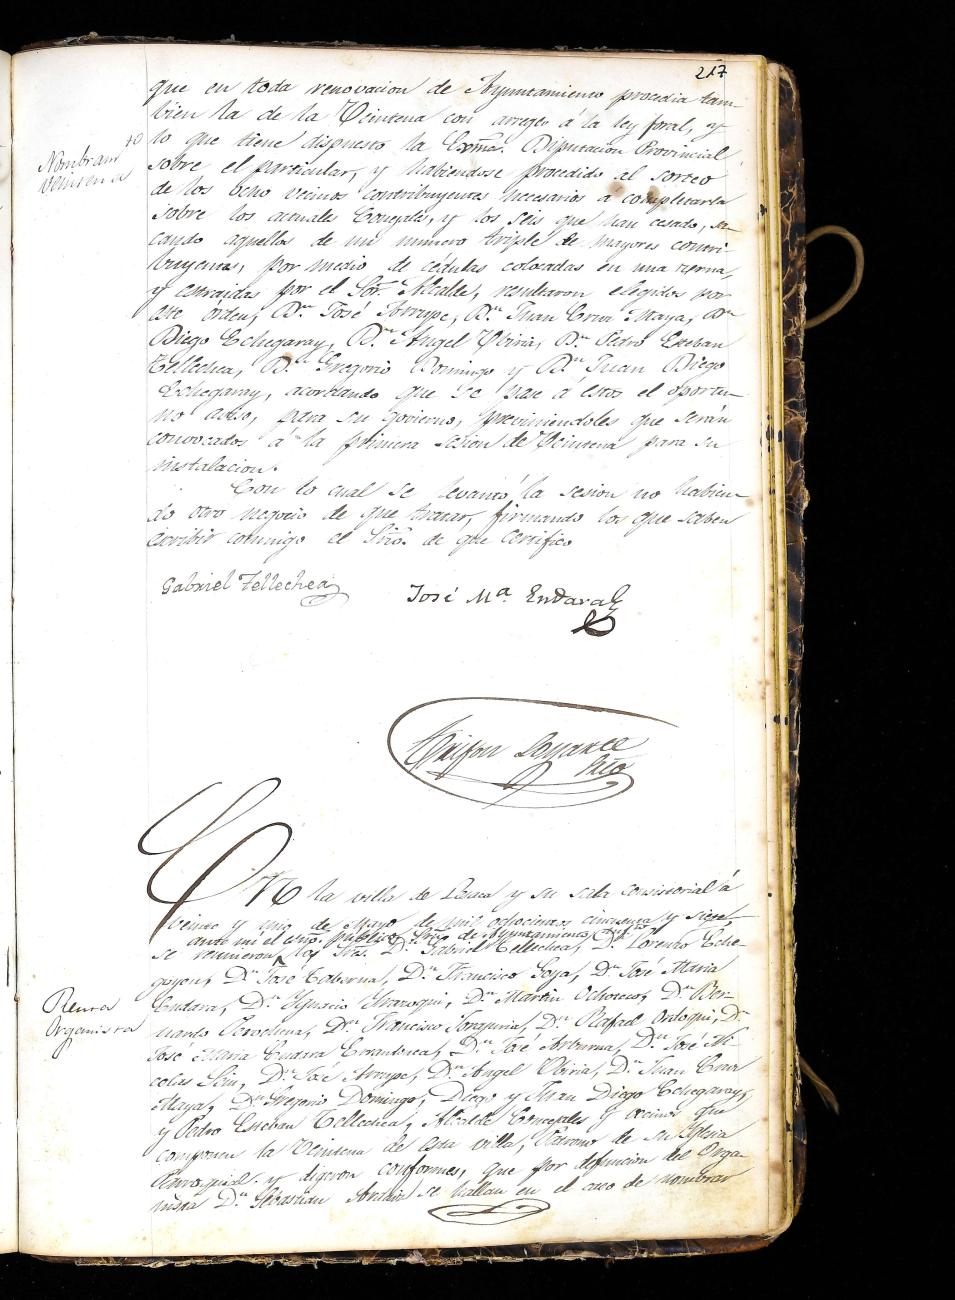 217
que en toda renovacion de Ayuntamiento procedia tam-
bien la de la Veintena con arreglo á la ley foral, y
lo que tiene dispuesto la Exma. Diputacion Provincial
Nombramto
Veintena
sobre el particular, y habiendose procedido al sorteo
de los ocho vecinos contribuyentes necesarios á completarla
sobre los actuales Concejales, y los seis que han cesado, sa-
cando aquellos de un número triple de mayores contri-
buyentes, por medio de cédulas colocadas en una
y estraidas por el Sor. Alcalde, resultaron elegidos por
este órden, Dn. José Arrupe, Dn. Juan Cruz Maya, Dn
Diego Echegaray, Dn. Angel Ubiria, Dn. Pedro Esteban
Tellechea, Dn. Gregorio Domingo y Dn. Juan Diego
Echegaray, acordando que se pase á estos el oportu-
no aviso, para su govierno, previniendoles que serán
convocados á la primera sesion de Veintena para su
instalacion.
Con lo cual se levantó la sesion no habien-
do otro negocio de que tratar, firmando los que saben
escribir conmigo el Srio. de que certifico
Gabriel Tellechea
José Ma. Endara
Srio
En la villa de y su sala consistorial á
veinte y uno de Mayo de mil ochocientos cincuenta y siete
ante mi el esno. público Srio. de Ayuntamiento
se reunieron los Sres. Dn. Gabriel Tellechea, Dn. Lorenzo Eche-
goyen, Dn. José Taberna, Dn. Francisco Goya, Dn. José Maria
Endara, Dn. Ignacio Dn. Martin Dn. Ber-
Renta
Organista
nardo Dn. Francisco Dn. Rafael Dn
José Maria Endara Dn. José Dn. José Ni-
colas Dn. José Arrupe, Dn. Angel Ubiria, Dn. Juan Cruz
Maya, Dn. Gregorio Domingo, Diego y Juan Diego Echegaray,
y Pedro Esteban Tellechea, Alcalde Concejales y vecinos que
componen la Veintena de esta villa, Patrono de su Iglesia
Parroquial y digeron conformes, que por defuncion del Orga-
nista Dn. Sebastian se hallan en el caso de nombrar